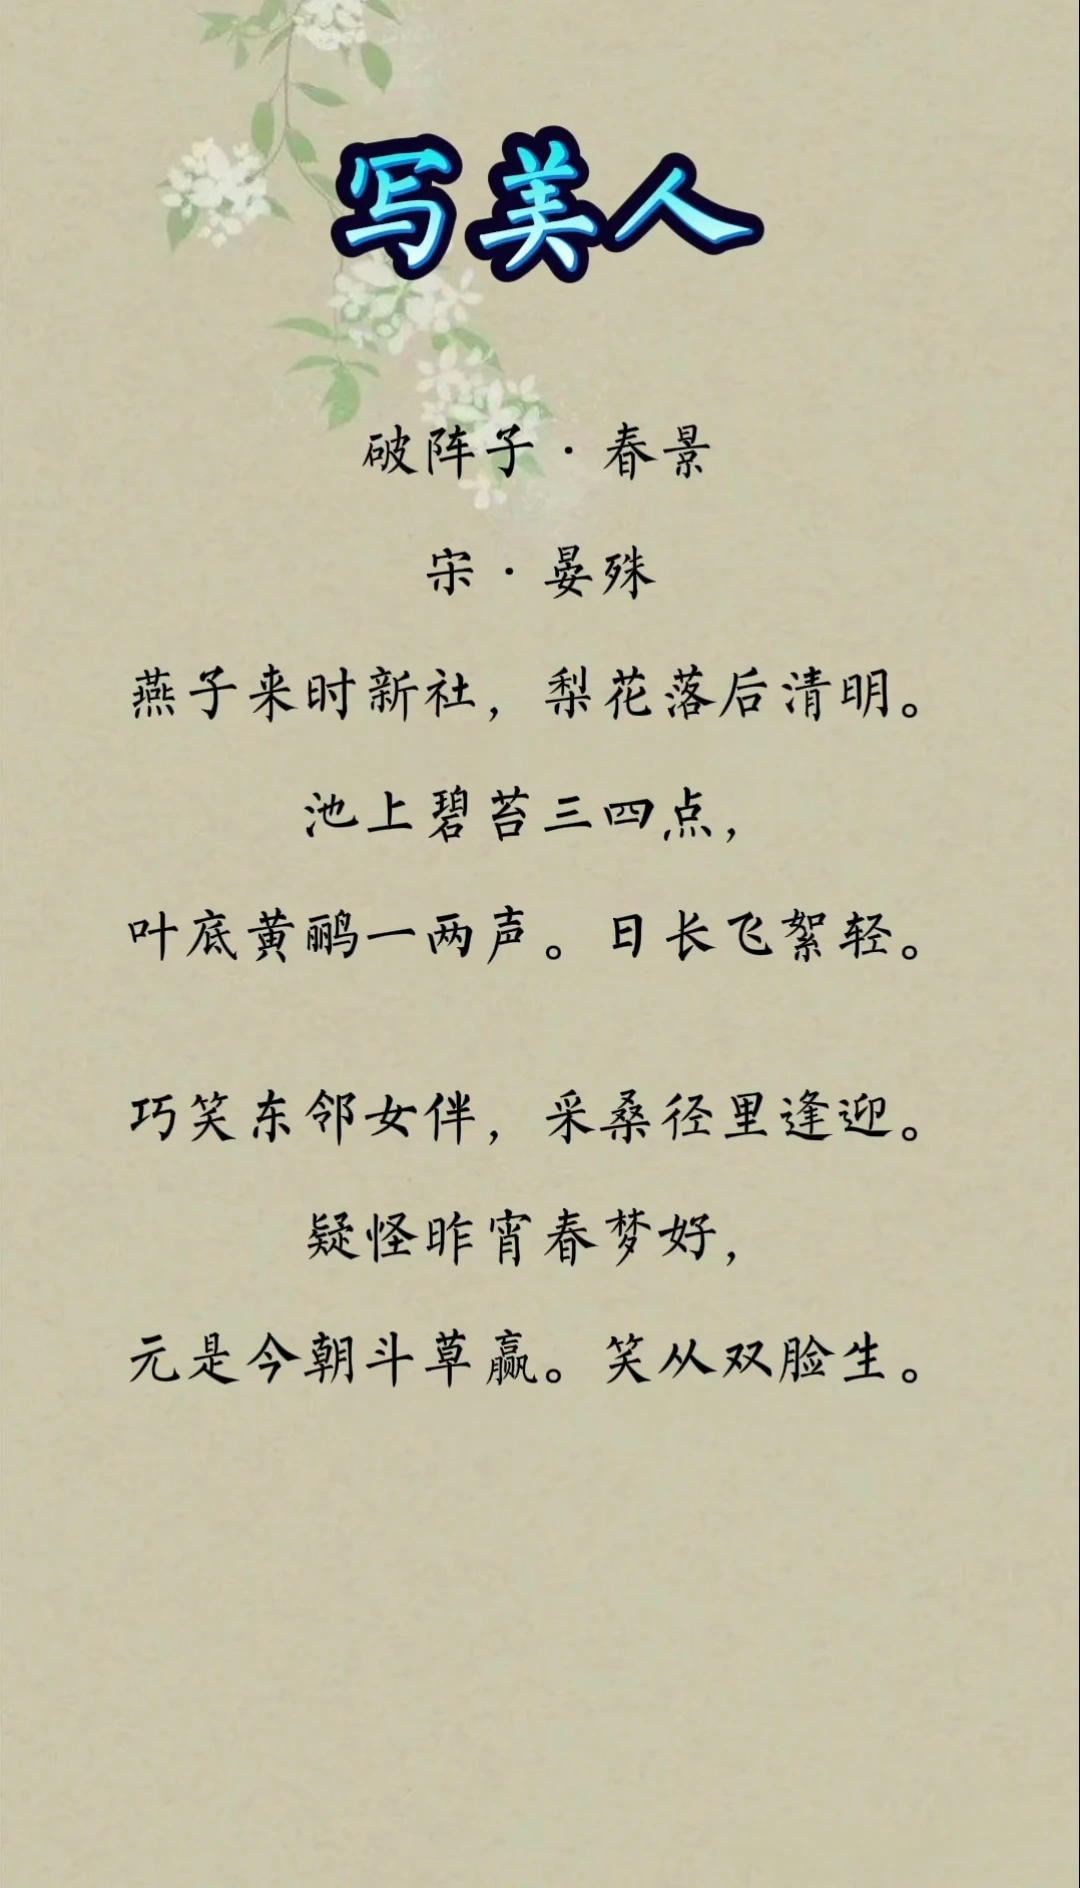 写美人
破阵子·春景
宋·晏殊
燕子来时新社，梨花落后清明。
池上碧苔三四点，
叶底黄鹂一两声。日长飞絮轻。
巧笑东邻女伴，采桑径里逢迎。
疑怪昨宵春梦好，
元是今朝斗草赢。笑从双脸生。